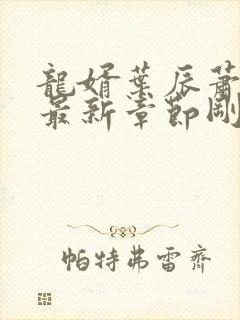 龍婿葉辰蕭
最新章節剛
帕特弗雷齊